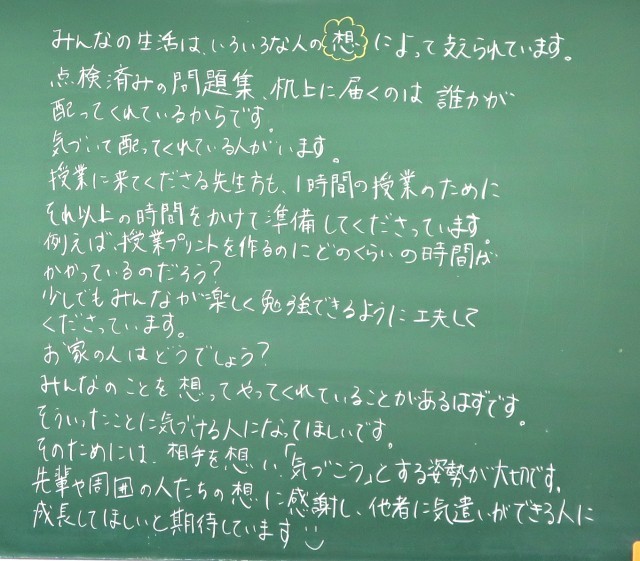 みんなの生活は、いろいろな人の想によって支えられています。
点検済みの問題集、机上に届くのは 誰かが
配ってくれているからです。
気づいて配ってくれている人がいます。
授業に来てくださる先生方も、1時間の授業のために
それ以上の時間をかけて準備してくださっています。
例えば、授業プリントを作るのにどのくらいの時間が
かかっているのだろう?
少しでもみんなが楽しく勉強できるように工夫して
くださっています。
お家の人はどうでしょう?
みんなのことを想ってやってくれていることがあるはずです。
そういったことに気づける人になってほしいです。
そのためには、相手を想い「気づこう」とする姿勢が大切です。
先輩や周囲の人たちの想に感謝し、他者に気遣いができる人に
成長してほしいと期待しています